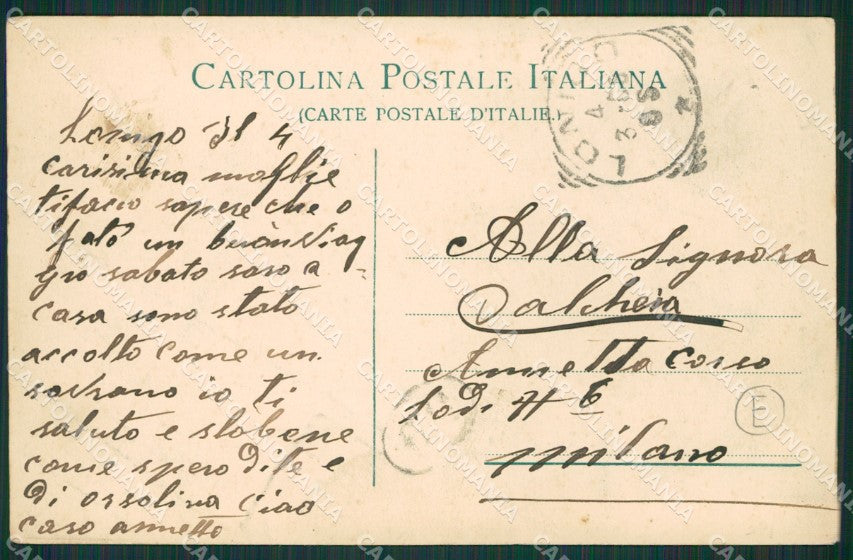 CARTOLINA POSTALE ITALIANA
(CARTE POSTALE D'ITALIE.)
LONIGO
4
05
Lonigo Il 4
carisima moglie
ti facio sapere che o
fato un buon viag
gio sabato saro a
casa sono stato
accolto come un
sovrano io ti
saluto e sto bene
come spero di te e
di orsolina ciao
caso annetto
Alla Signora
Annetta corso
Lodi # 6
milano
E
CARTOLINOMANIA